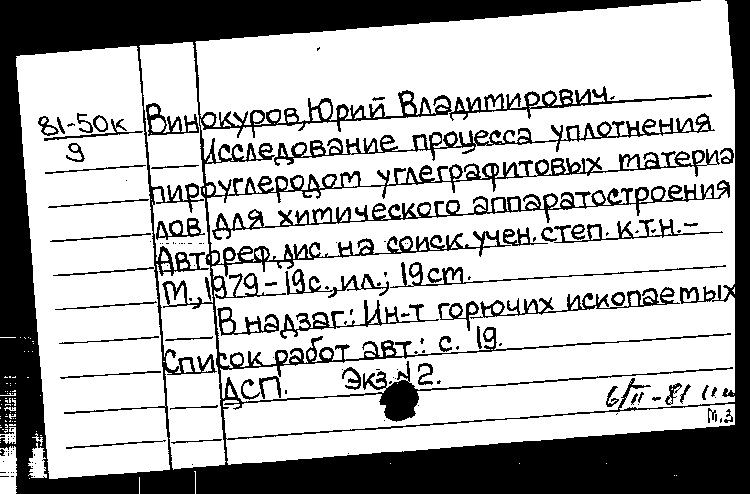 81-50к Винокуров, Юрий Владимирович.
9 Исследование процесса уплотнения
пироуглеродом углеграфитовых материа
лов для химического аппаратостроения
Автореф. дис. на соиск. учен. степ. к.т.н.-
М., 1979.- 19с., ил.; 19 см.
В надзаг.: Ин-т горючих ископаемых
Список работ авт.: с. 19.
ДСП. Экз. № 2.
6/II-81
М.З